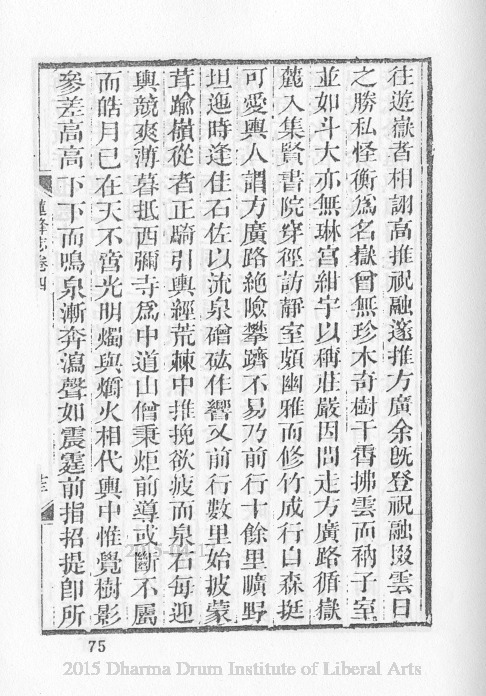 往遊嶽者相詡高推祝融邃推方廣余既登祝融掇雲日
之勝私怪衡為名嶽曾無珍木奇樹干霄拂雲而衲子室
並如斗大亦無琳宮紺宇以稱莊嚴因問走方廣路循嶽
麓入集賢書院穿徑訪靜室頗幽雅而修竹成行白森挺
可愛輿人謂方廣路絶險攀躋不易乃前行十餘里曠野
坦迤時逢佳石佐以流泉磳砿作響又前行數里始披蒙
茸踰嶺從者正騎引輿經荒棘中推挽欲疲而泉石每迎
輿競爽薄暮抵西彌寺為中道山僧秉炬前導或斷不屬
而皓月已在天不啻光明燭與爝火相代輿中惟覺樹影
參差高高下下而鳴泉漸奔瀉聲如震霆前指招提卽所
蓮峰志卷四
十三
75
2015 Dharma Drum Institute of Liberal Arts